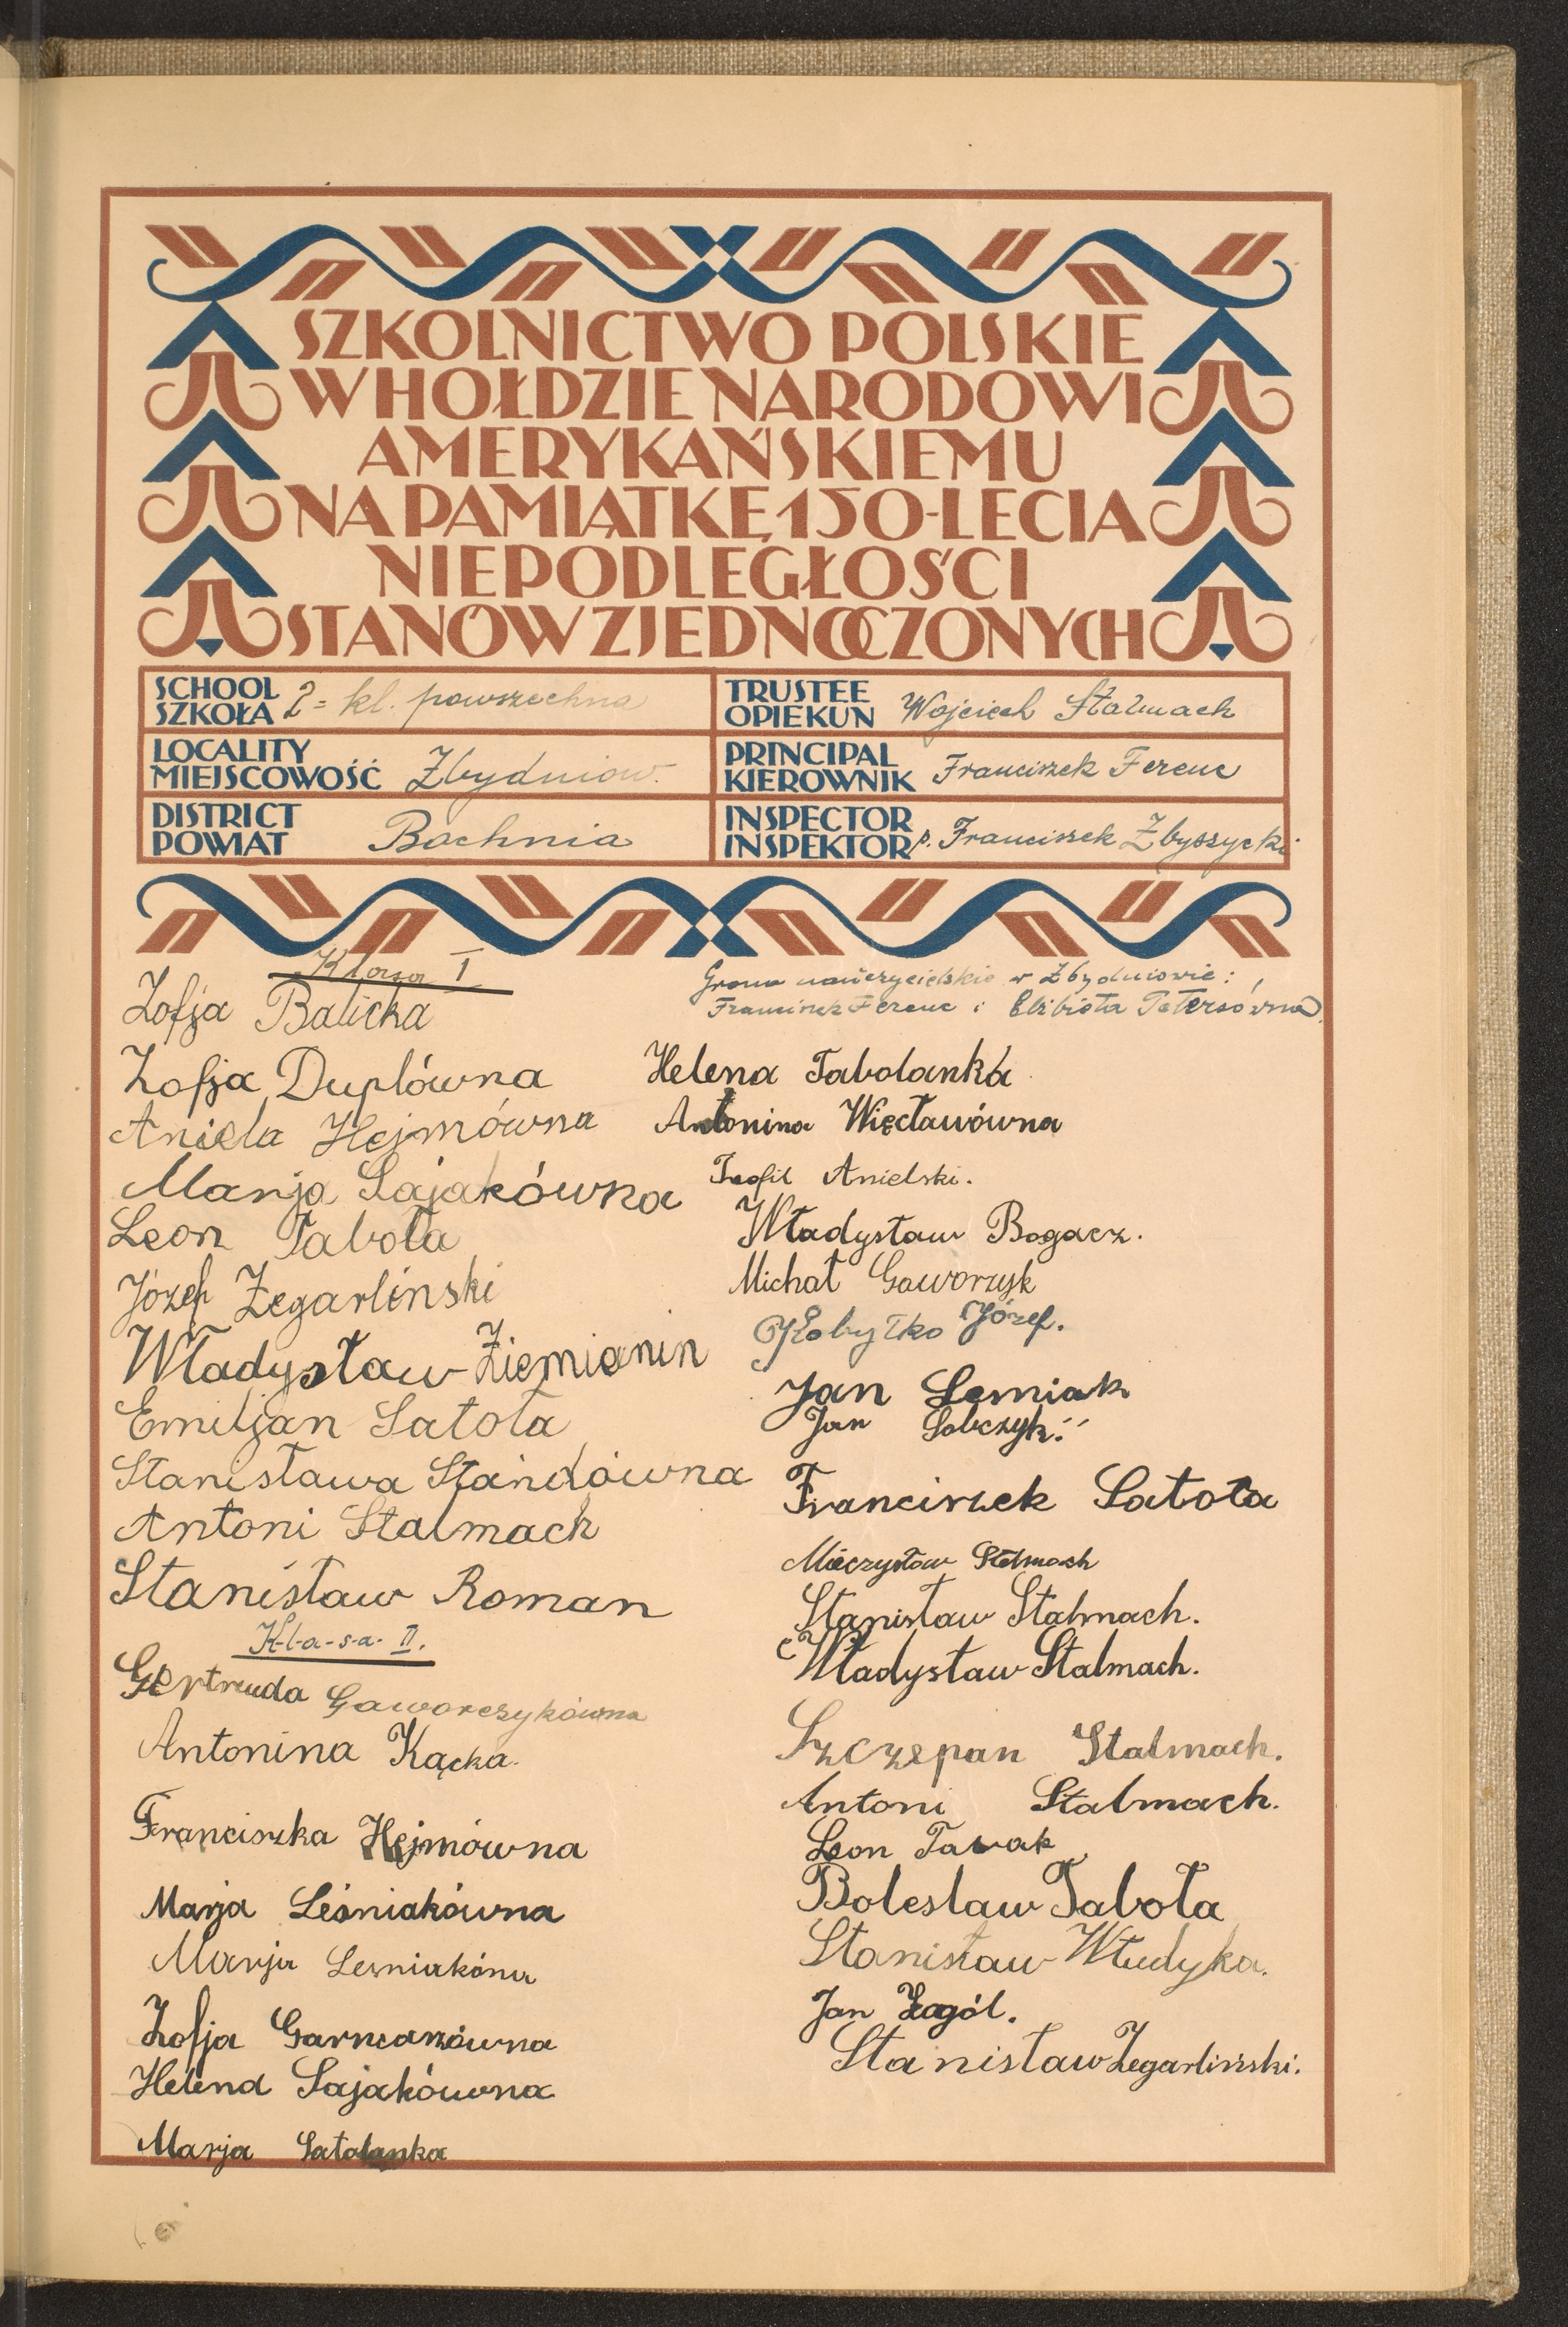 SZKOLNICTWO POLSKIE
W HOŁDZIE NARODOWI
AMERYKAŃSKIEMU
NA PAMIĄTKĘ 150-LECIA
NIEPODLEGŁOŚCI
STANÓW ZJEDNOCZONYCH
SCHOOL
SZKOŁA 2= kl. powszechna
TRUSTEE
OPIEKUN Wojciech Stalmach
LOCALITY
MIEJSCOWOŚĆ Zbydniow.
PRINCIPAL
KIEROWNIK Franciszek Ferenc
DISTRICT
POWIAT Bochnia
INSPECTOR
INSPEKTOR p. Franciszek Zbyszycki
Klasa I
Zofja Balicka
Zofja Duplówna
Aniela Hejmówna
Marija Sajakówna
Leon Tabota
Józef Zegarlinski
Władysław Ziemianin
Emiljan Satoła
Stanisława Standówna
Antoni Stalmach
Stanisław Roman
K-l-a-s-a- II.
Gertruda Gaworczykówna
Antonina Kącka.
Franciszka Hejmówna
Marja Leśniakówna
Marja Lesniakóna
Zofja Garncarzówna
Helena Sajakówna
Marja Satolanka
Grono nauczycielskie w Zbydniowie:
Franciszek Ferenc i Elżbieta Petersówna
Helena Tabolanka
Antonina Więcławówna
Teofil Anielski.
Władysław Bogacz.
Michał Gaworzyk
Kobyłko Józef.
Jan Lesniak
Jan Sobczyk.
Franciszek Satoła
Mieczysław Stalmach
Stanisław Stalmach.
Władysław Stalmach.
Szczepan Stalmach.
Antoni Stalmach.
Leon Tabak
Bolesław Taboła
Stanisław Włudyka.
Jan Żagól.
Stanisław Zegarliński.